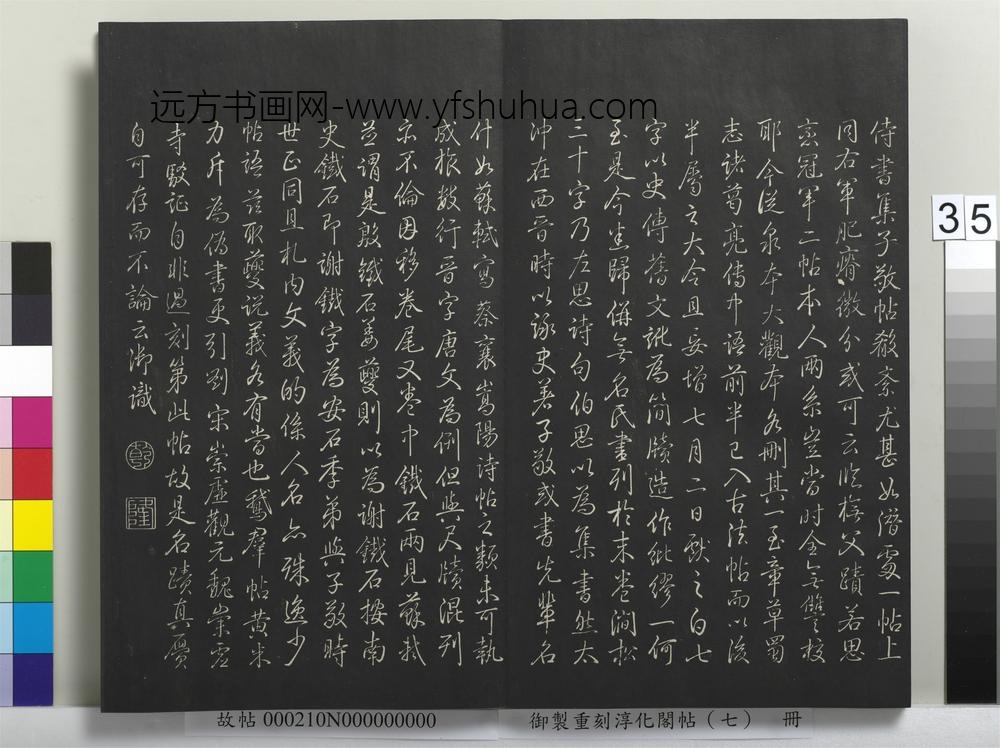 远方书画网-www.yfshuhua.com
侍書集子敬帖散紊尤甚如濳處一帖上
同右軍肥瘠微分或可云臨橅父蹟若思
戀冠軍二帖本人兩系豈當時全無讐校
耶今從泉本大觀本各刪其一至章草蜀
志諸葛亮傳中語前半已入古法帖而以後
半屬之大令且妄增七月二日獻之白七
字以史傳舊文訛為簡牘造作紕繆一何
至是今坐歸併無名氏書列於末卷澗松
二十字乃左思詩句伯思以為集書然太
沖在西晉時以詠史著子敬或書先輩名
什如蘇軾寫蔡襄嵩陽詩帖之類未可執
咸根數行晉字唐文為例但與尺牘混列
亦不倫因移卷尾又卷中鐵石兩見蘇軾
並謂是殷鐵石姜夔則以為謝鐵石按南
史鐵石即謝鐵字為安石季弟與子敬時
世正同且札內文義的係人名亦殊逸少
帖語茲取夔說義各有當也鵝羣帖黃米
力斥為偽書更引劉宋崇虛觀元魏崇虛
寺駮証自非過刻第此帖故是名蹟真贗
自可存而不論云御識
乾
隆
35
故帖 000210N000000000
御製重刻淳化閣帖（七） 冊